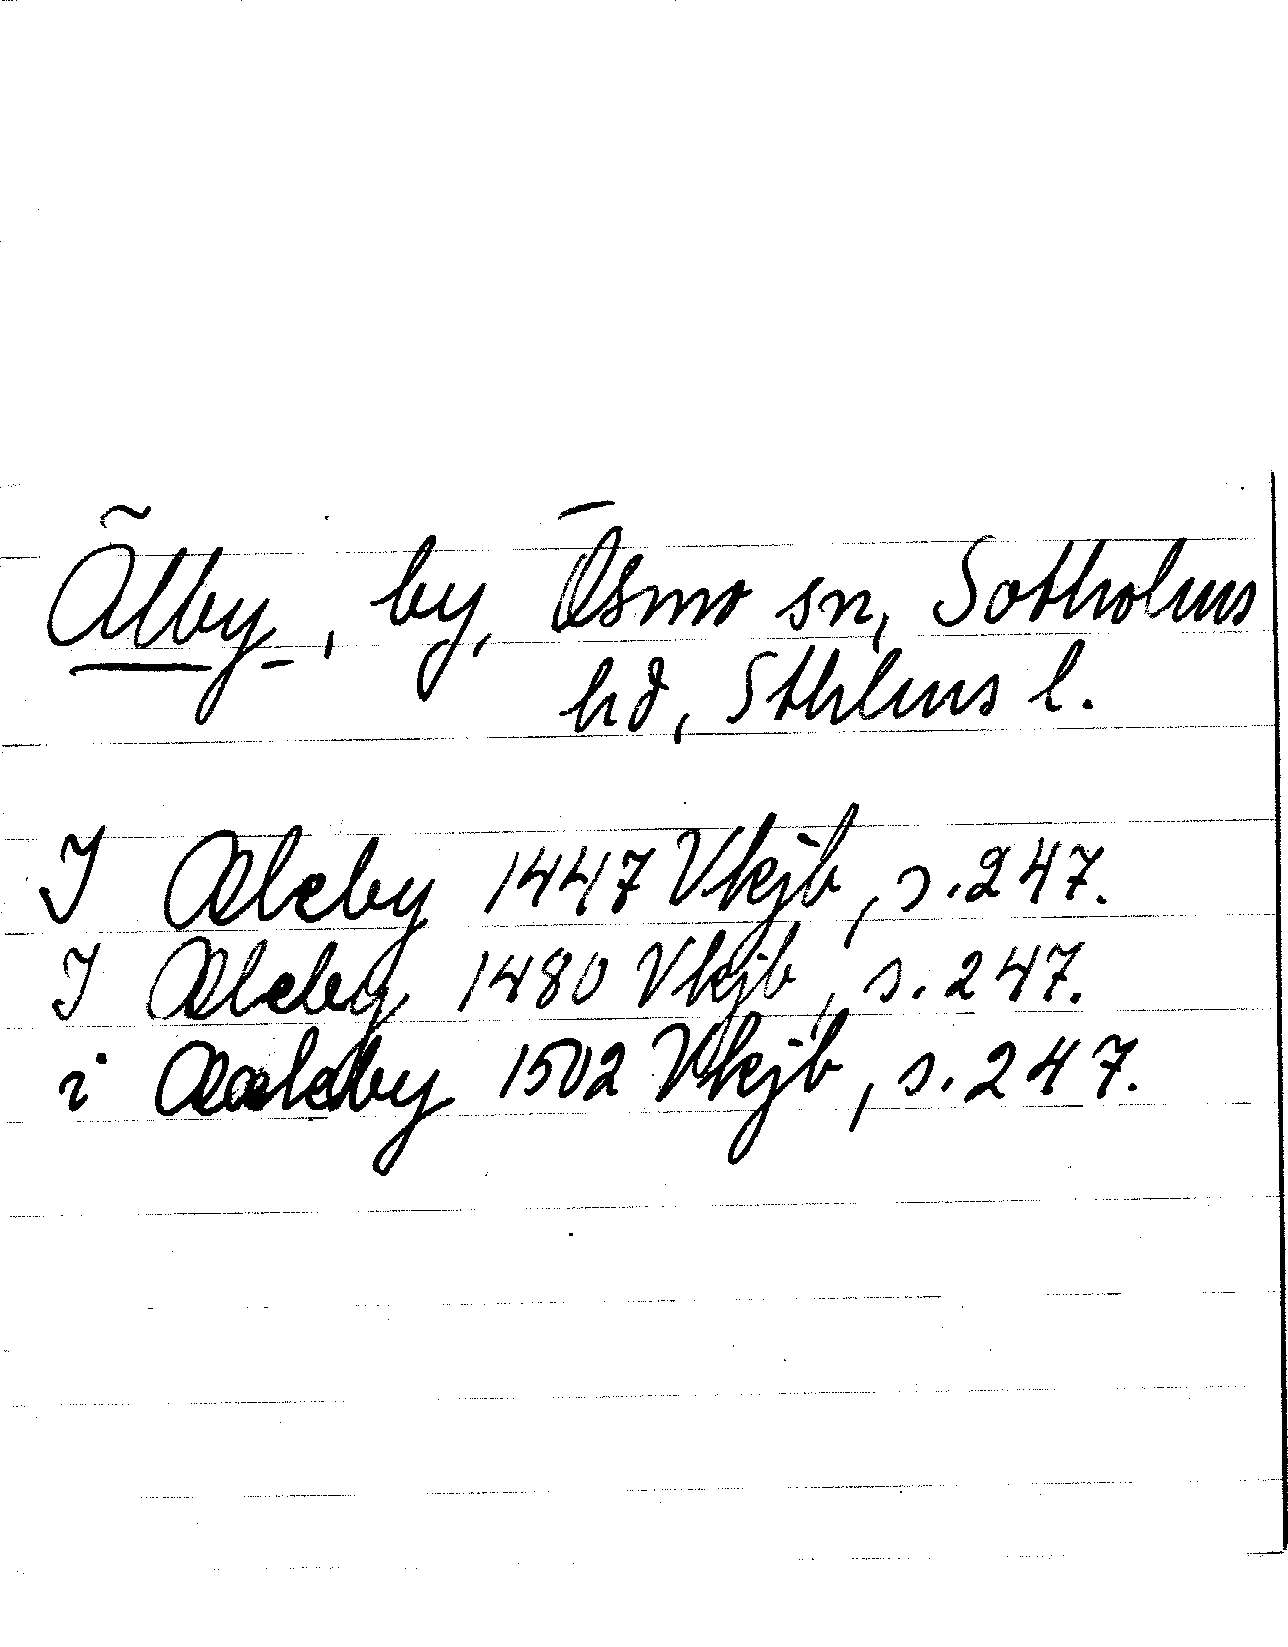 Älby, by, Ösmo sn, Sotholms
hd, Sthlms l.
I Ælcby 1447 Vkjb, s. 247.
I Ælcby 1480 Vkjb, s. 247.
i 1502 Vkjb, s. 247.